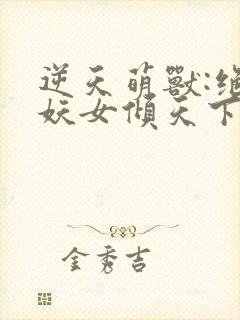 逆天萌獸:絕
妖女傾天下
金秀吉